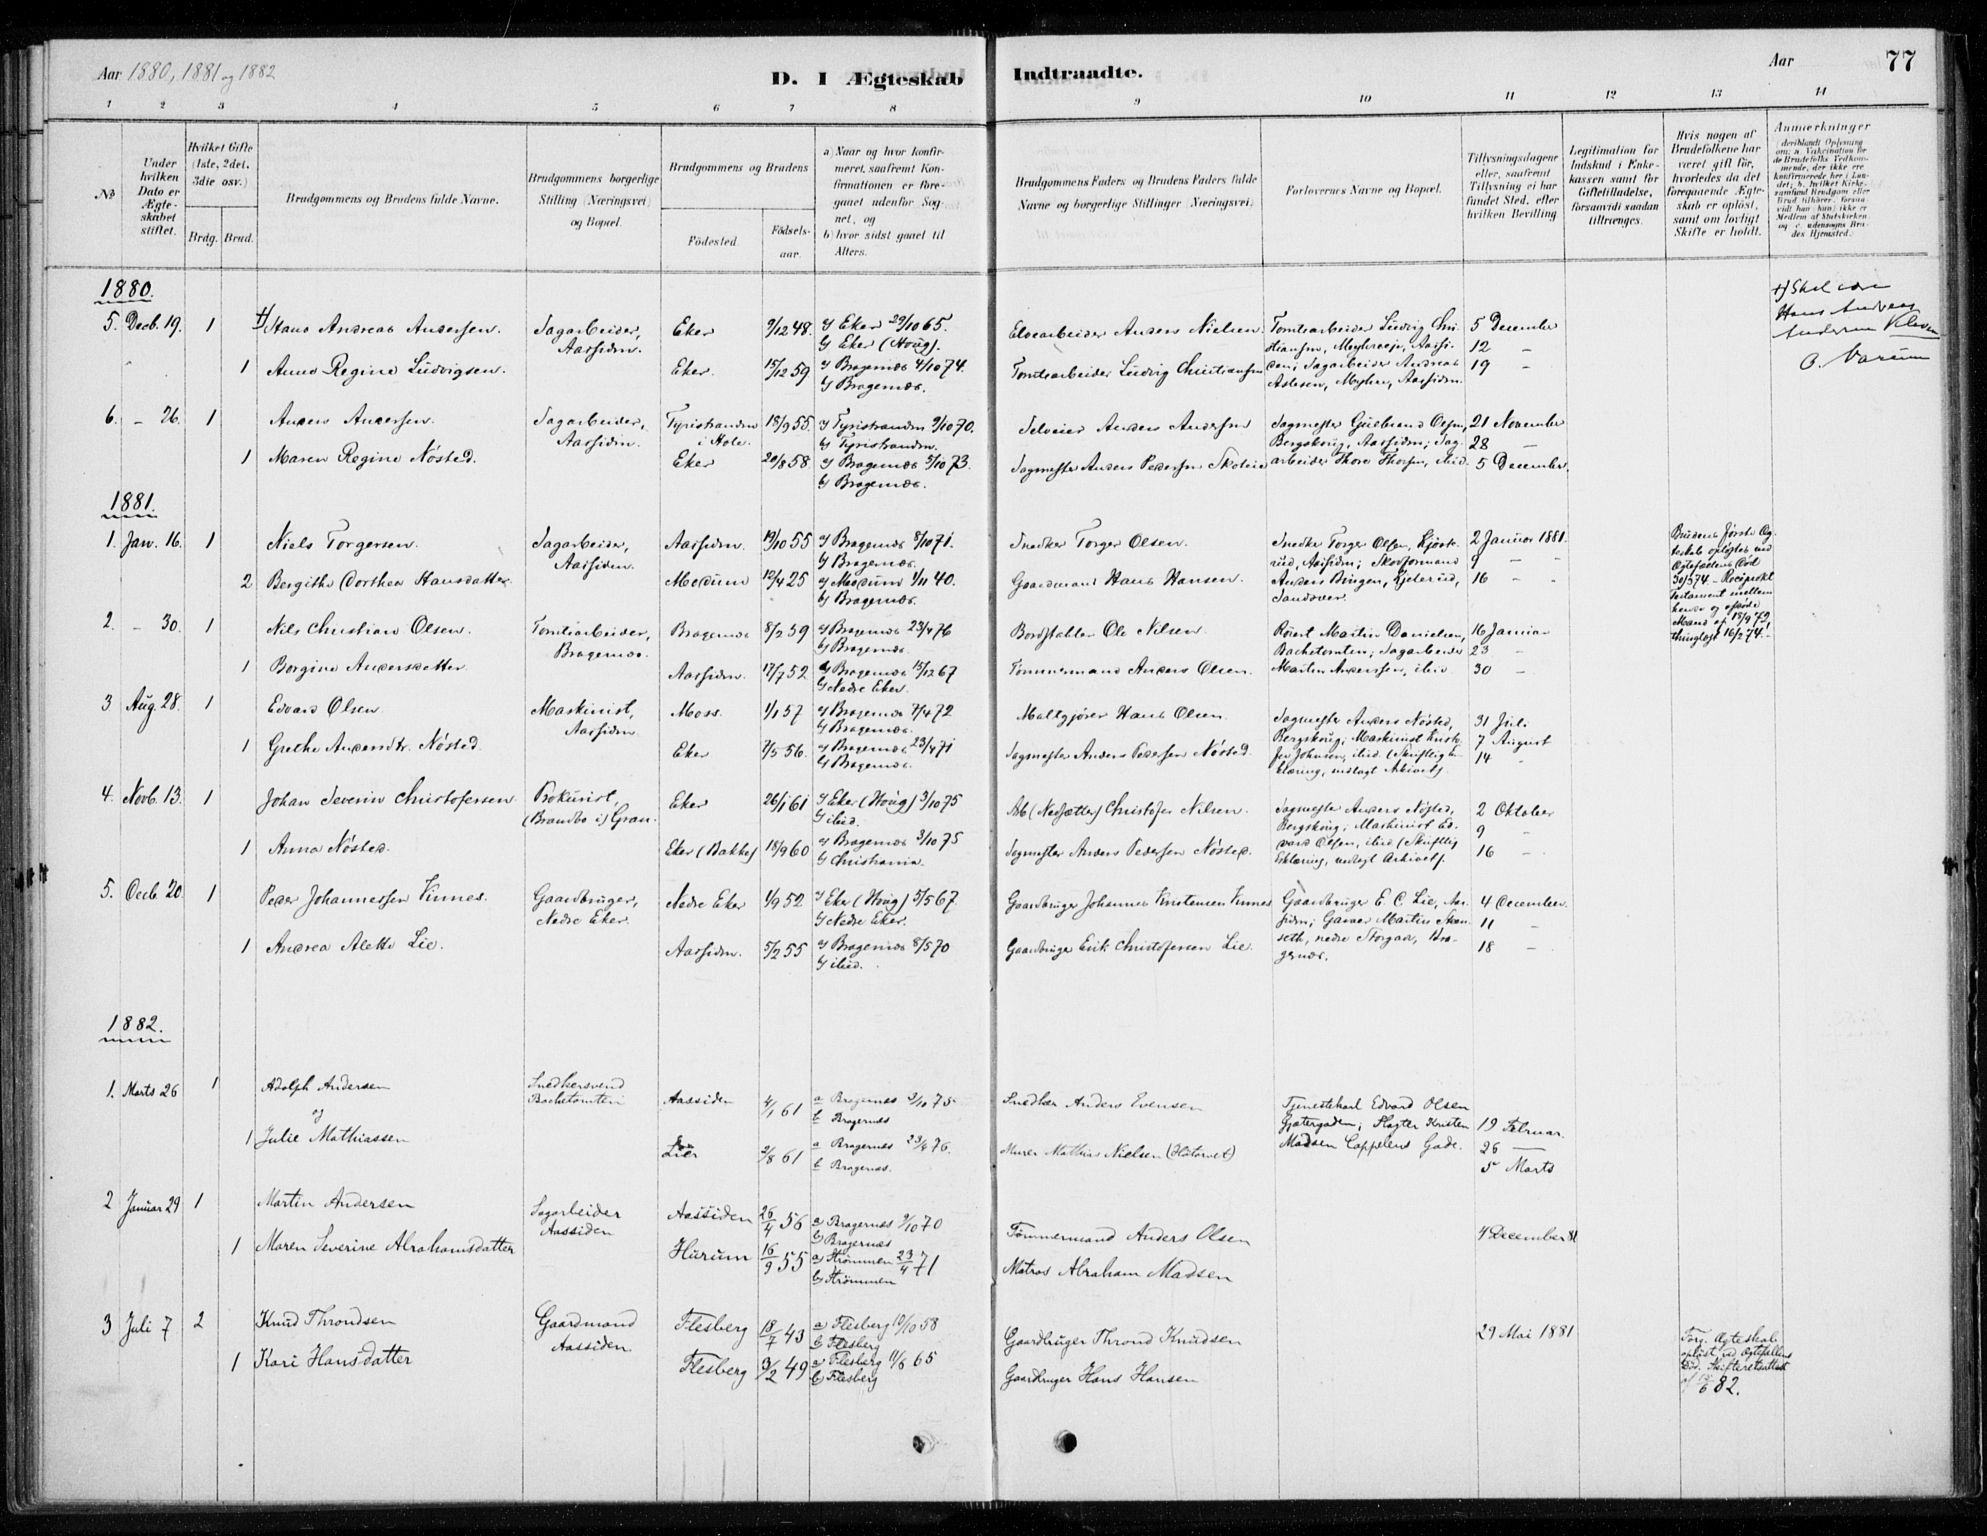 Aar 1880, 1881 og 1882
D. I Ægteskab Indtraadte.
Aar
77
1 2 3 4 5 6 7 8 9 10 11 12 13 14
No
Under hvilken Dato er Ægteskabet stiftet.
Hvilket Gifte (1ste, 2det, 3die osv.)
Brdg. Brud.
Brudgommens og Brudens fulde Navne.
Brudgommens borgerlige Stilling (Næringsvei) og Bopæl.
Brudgommens og Brudens
Fødested.
Fødselsaar.
a) Naar og hvor konfirmeret, saafremt Konfirmationen er foregaaet udenfor Sognet, og
b) hvor sidst gaaet til Alters.
Brudgommens Faders og Brudens Faders fulde Navne og borgerlige Stillinger (Næringsvei)
Forlovernes Navne og Bopæl.
Tillysningsdagene eller, saafremt Tillysning ei har fundet Sted, efter hvilken Bevilling
Legitimation for Indskud i Enkekassen samt for Giftetilladelse, forsaavidt saadan tiltrænges.
Hvis nogen af Brudefolkene har været gift før, hvorledes da det foregaaende Ægteskab er opløst, samt om lovligt Skifte er holdt.
Anmerkninger
1880.
5. Decb. 19. 1 +) Hans Andreas Andersen. Sagarbeider, Aassiden. Eker 9/12 48. a) Eker 29/10 65. b) Eker (Houg). Elvearbeider Anders Nielsen. Tomtearbeider Ludvig Christiansen, 5 December
12 –
19 –
+) Skal være
Hans Andreas
Andersen
1 Anne Regine Ludvigsen. Eker. 15/12 59 a) Bragernæs 4/10 74. b) Bragernæs. Tomtearbeider Ludvig Christiansen Sagarbeider Andreas
6. – 26. 1 Anders Andersen. Sagarbeider, Aassiden. Tyristranden i Hole. 18/9 55. a) Tyristranden 9/10 70. b) Tyristranden. Selveier Anders Andersen Sagmester Gulbrand Olsen, Bergskoug, Aassiden; Sagarbeider Thore Thorsen, ibid. 21 November
28 –
5 December.
1 Maren Regine Nösted. Eker 20/8 58. a) Bragernæs 5/10 73. b) Bragernæs. Sagmester Anders Pedersen
1881.
1. Jan. 16. 1 Niels Torgersen. Sagarbeider, Aassiden. Aassiden. 19/10 55 a) Bragernæs 8/10 71. b) Bragernæs. Snedker Torger Olsen. Snedker Torger Olsen, Aassiden; Skovformand Anders Bingen, 2 Januar 1881.
9 – –
16 – –
2 Bergithe Dorthea Hansdatter. Modum 12/4 25 a) Modum 1/11 40. b) Bragernæs. Gaardmand Hans Hansen.
Brudens første Ægteskab opløstes ved Ægtefællens Död 30/5 74 – Reciprokt Testament mellem hende og afdøde Mand af 18/9 73, thinglyst 16/2 74.
2. – 30. 1 Nils Christian Olsen. Tomtearbeider, Bragernæs. Bragernæs 8/2 59 a) Bragernæs 23/4 76 b) Bragernæs. Bordstabler Ole Nilsen. Martin Danielsen, Bachetomten; Sagarbeider Martin Anderssen, ibid 16 Januar
23 –
30 –
1 Borgine Andersdatter Aassiden. 17/7 52 a) Bragernæs 15/12 67 b) Nedre Eker. Tømmermand Anders Olsen.
3 Aug. 28. 1 Edvard Olsen Maskinist, Aassiden. Moss. 1/1 57 a) Bragernæs 7/4 72 b) Bragernæs. Maltgjører Hans Olsen. Sagmester Anders Nösted, Bergskoug; Maskinist Johnsen, ibid. (Skriftlig Erklæring, indlagt Arkivet). 31 Juli
7 August
14 –
1 Grethe Andersdtr. Nösted. Eker 7/5 56. a) Bragernæs 23/4 71 b) Bragernæs. Sagmester Anders Pedersen Nösted.
4. Novb. 13. 1 Johan Severin Christofersen Gran. Eker 26/1 61 a) Eker (Houg) 3/10 75 b) ibid. Christofer Nilsen. Sagmester Anders Nösted, Bergskoug; Maskinist Edvard Olsen, ibid (Skriftlig Erklæring, indlagt Arkivet). 2 Oktober
9 –
16 –
1 Anna Nösted. Eker (Bakke) 18/9 60 a) Bragernæs 3/10 75 b) Christiania. Sagmester Anders Pedersen Nösted.
5. Decb. 20. 1 Peder Johannessen Vinnes. Gaardbruger, Nedre Eker. Nedre Eker 1/9 52 a) Eker (Houg) 5/5 67 b) Nedre Eker. Gaardbruger Johannes Kristensen Vinnes Gaardbruger E. C. Lie, Aassiden; Garver Martin nedre Storgade, Bragernæs. 4 December.
11 –
18 –
1 Andrea Alette Lie. Aassiden. 5/2 55 a) Bragernæs 8/5 70 b) ibid. Gaardbruger Erik Christofersen Lie.
1882.
1. Marts 26 1 Adolph Andersen Snedkersvend Bachetomten Aassiden 4/1 61 a Bragernæs 3/10 75 b Bragernæs Snedker Anders Evensen Tjenestekarl Edvard Olsen Gjetergaden; Slagter Kristen Madsen Cappelens Gade. 19 Februar.
26 —
5 Marts
og
1 Julie Mathiassen Lier 2/8 61 a Bragernæs 23/4 76. b Bragernæs. Murer Mathias Nielsen (Höitorvet)
2 Januar 29 1 Martin Andersen Sagarbeider Aassiden Aassiden 26/4 56 a) Bragernæs 9/10 70 b) Bragernæs Tømmermand Anders Olsen 4 December 81
1 Maren Severine Abrahamsdatter Hurum 16/9 55 a) Strömmen 23/4 71 b) Strömmen Matros Abraham Madsen
3 Juli 7 2 Knud Throndsen Gaardmand Aassiden Flesberg 18/7 43 a) Flesberg 10/10 58 b) Flesberg Gaardbruger Thrond Knudsen 29 Mai 1881
1 Kari Hansdatter Flesberg 3/2 49 a) Flesberg 11/6 65 b) Flesberg Gaardbruger Hans Hansen
Forr. Ægteskab opløst ved Ægtefællens Død. Skifteretsattest af 82.